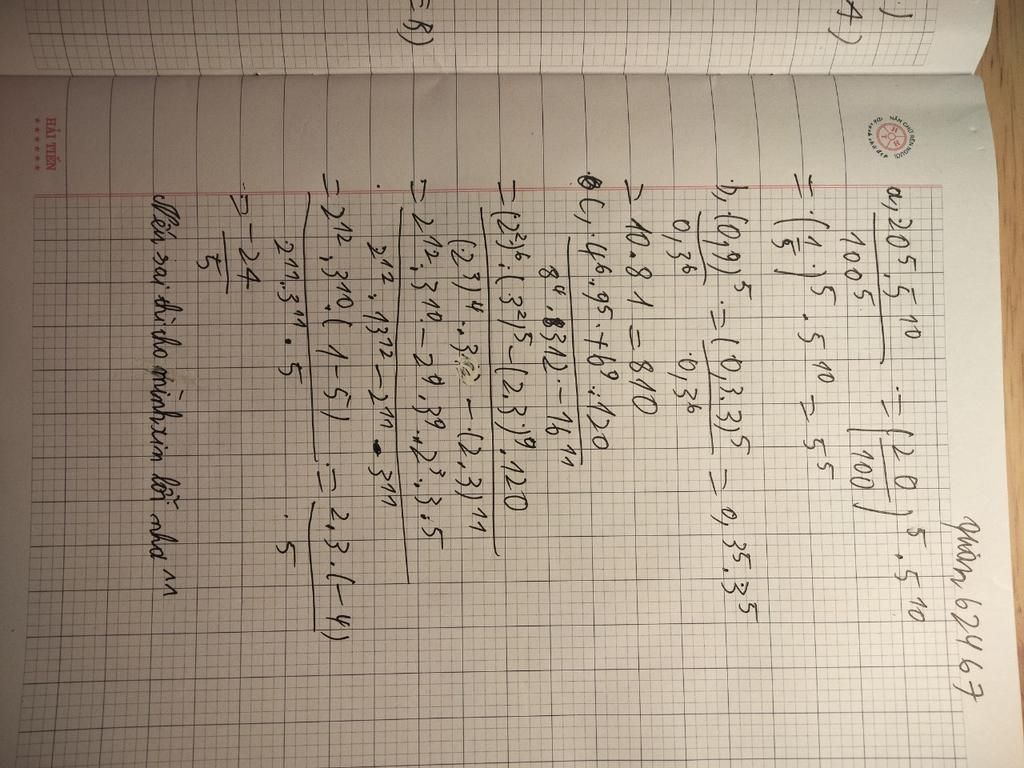 quân 62467
a, 20⁵.5¹⁰ / 100⁵ = (20/100)⁵.5¹⁰
= (1/5)⁵.5¹⁰ = 5⁵
b, (0,9)⁵ / 0,3⁶ = (0,3.3)⁵ / 0,3⁶ = 0,3⁵.3⁵
= 10.81 = 810
c, 4⁶.9⁵.+6⁹.120 / 8⁴.3¹² - 16¹¹
= (2²)⁶.(3²)⁵-(2.3)⁹.120 / (2³)⁴.3 - (2,3)11
= 2¹².3¹⁰-2⁹.3⁹.2³.3.5 / 2¹².13¹²-2¹¹.3¹¹
= 2¹².3¹⁰.(1-5) / 2¹¹.3¹¹.5 = 2.3.(-4) / 5
= -24 / 5
Nếu sai thì cho mình xin lỗi nha
HẢI TIẾN